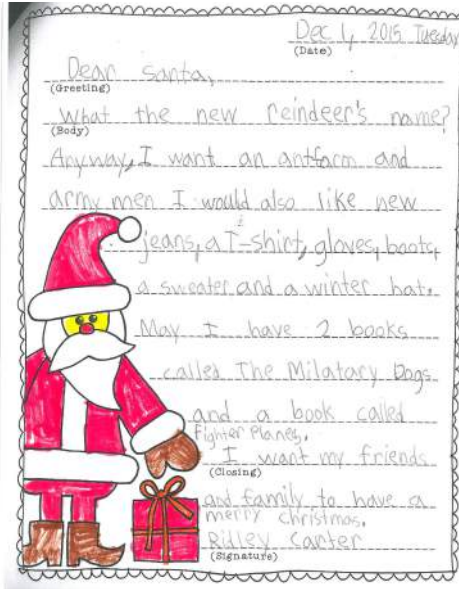 Dec 1, 2015 Tuesday
(Date)
Dear santa,
(Greeting)
What the new reindeer's name?
(Body)
Anyway, I want an antfarm and
army men I would also like new
jeans, a T-shirt, gloves, boots,
a sweater and a winter hat.
May I have 2 books
called The Milatary Dogs
and a book called
Fighter Planes.
I want my friends
(Closing)
and family to have a
merry christmas.
Ridley Carter
(Signature)